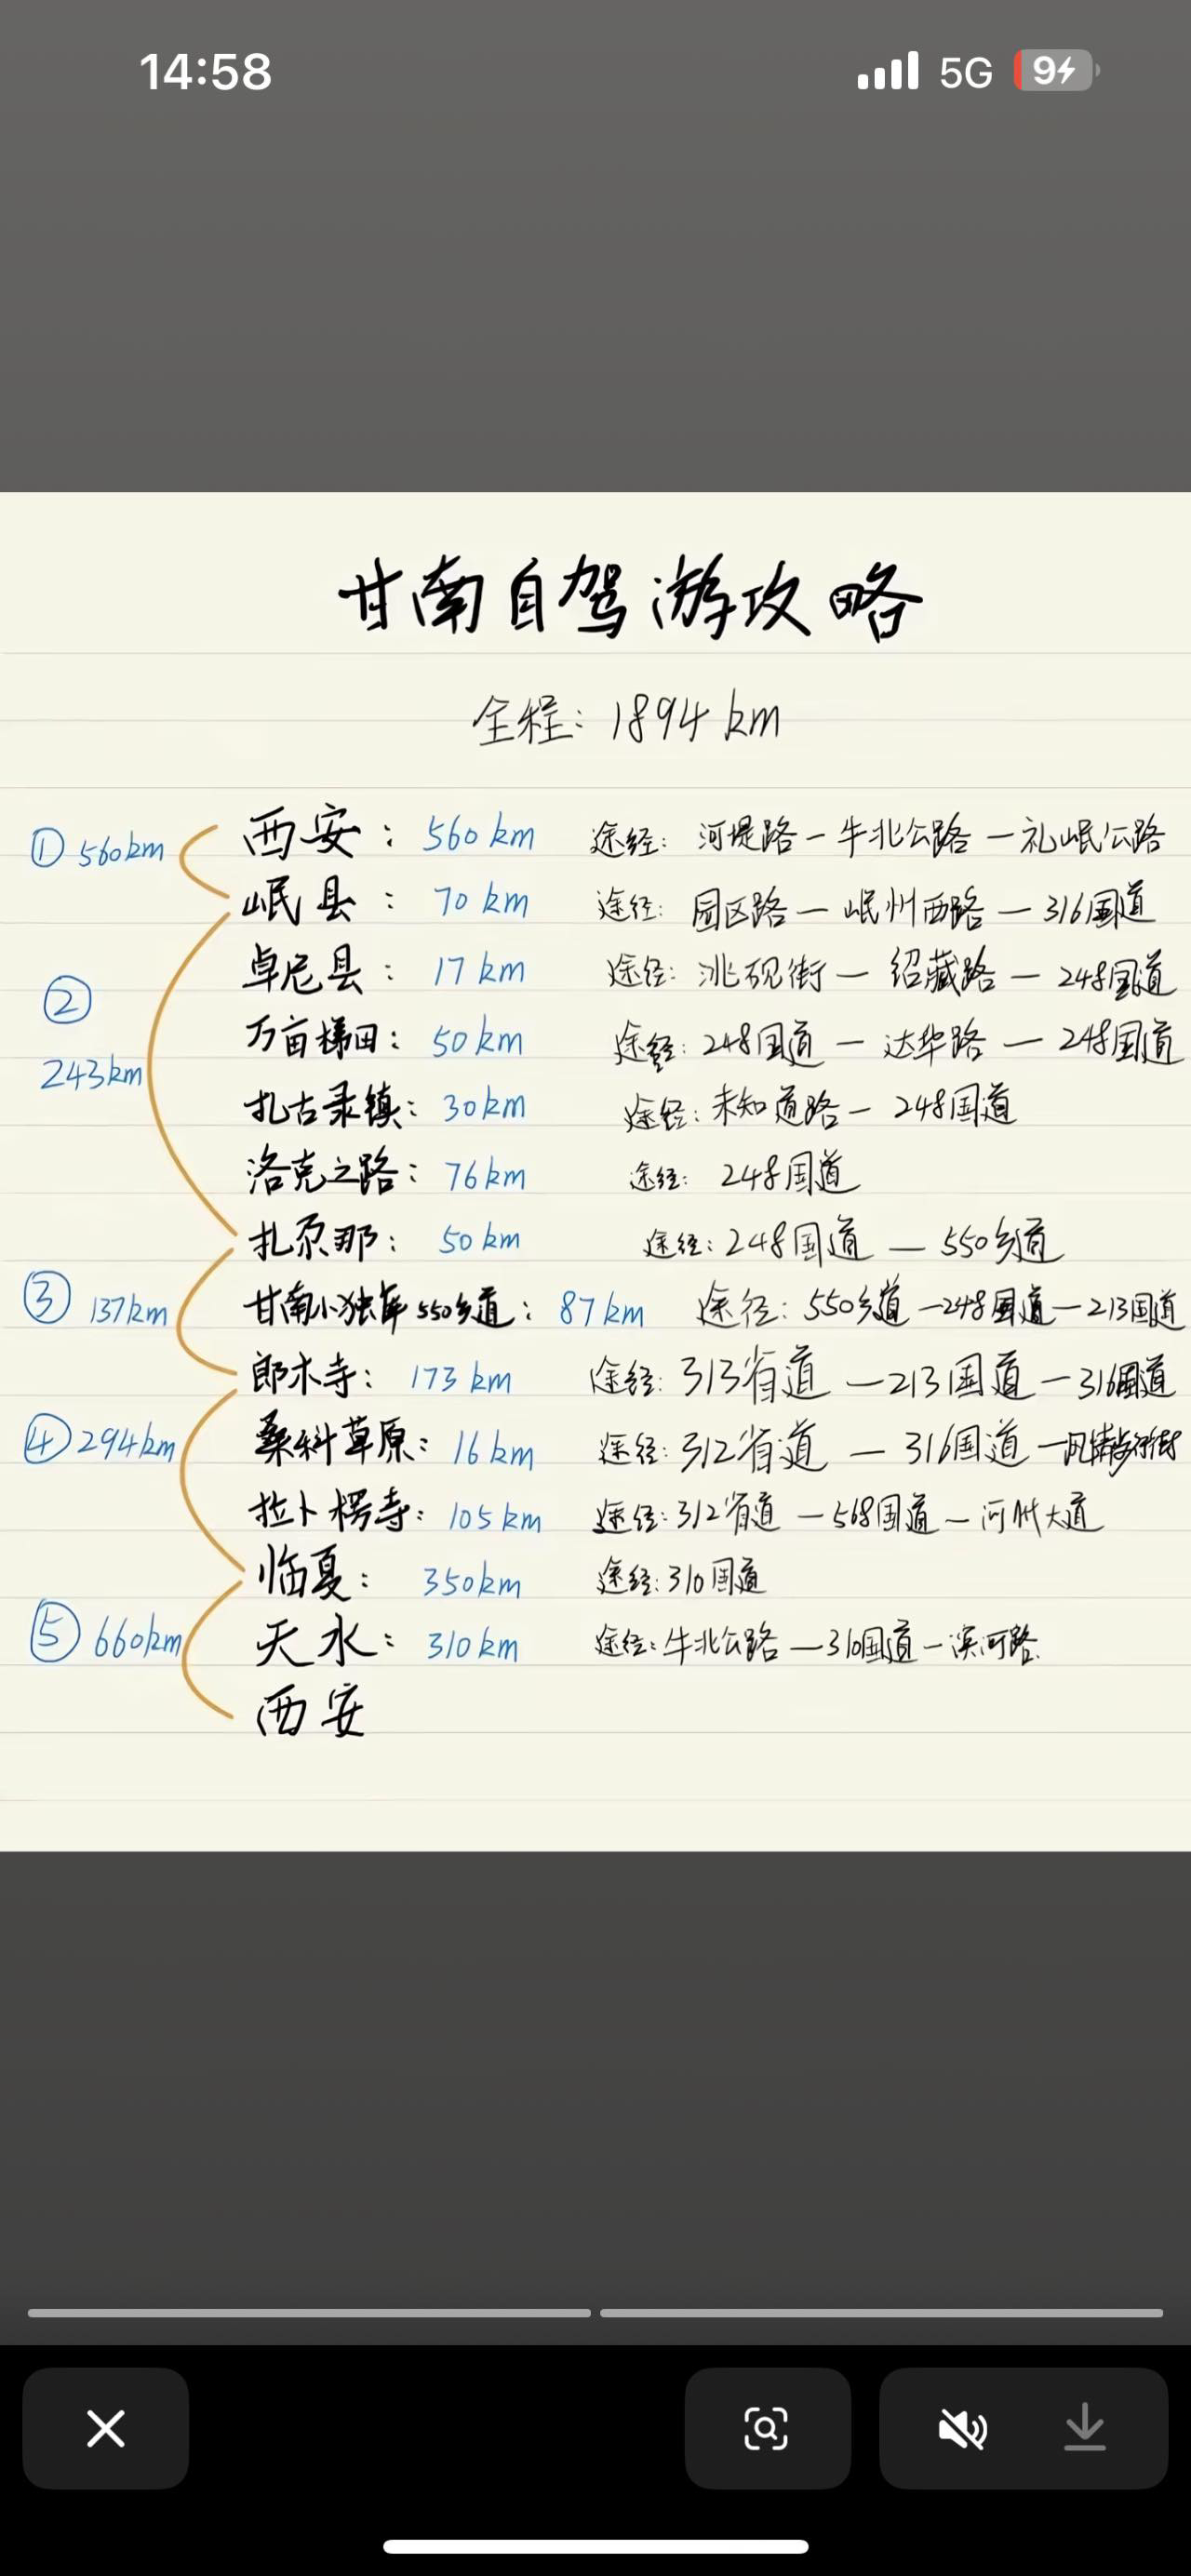 14:58 5G 9
甘南自驾游攻略
全程: 1894 km
① 560km
西安: 560 km 途经: 河堤路 — 牛北公路 — 礼岷公路
岷县: 70 km 途径: 园区路 — 岷州西路 — 316国道
卓尼县: 17 km 途径: 洮砚街 — 绍藏路 — 248国道
②
243km
万亩梯田: 50 km 途经: 248国道 — 达华路 — 248国道
扎古录镇: 30km 途经: 未知道路 — 248国道
洛克之路: 76km 途经: 248国道
扎尕那: 50 km 途经: 248国道 — 550乡道
③ 137km
甘南小独库550乡道: 87km 途径: 550乡道 — 248国道 — 213国道
郎木寺: 173 km 途经: 313省道 — 213国道 — 316国道
④ 294km
桑科草原: 16 km 途经: 312省道 — 316国道 — 风情步行街
拉卜楞寺: 105 km 途经: 312省道 — 568国道 — 河州大道
临夏: 350km 途经: 310国道
⑤ 660km
天水: 310 km 途经: 牛北公路 — 310国道 — 滨河路.
西安